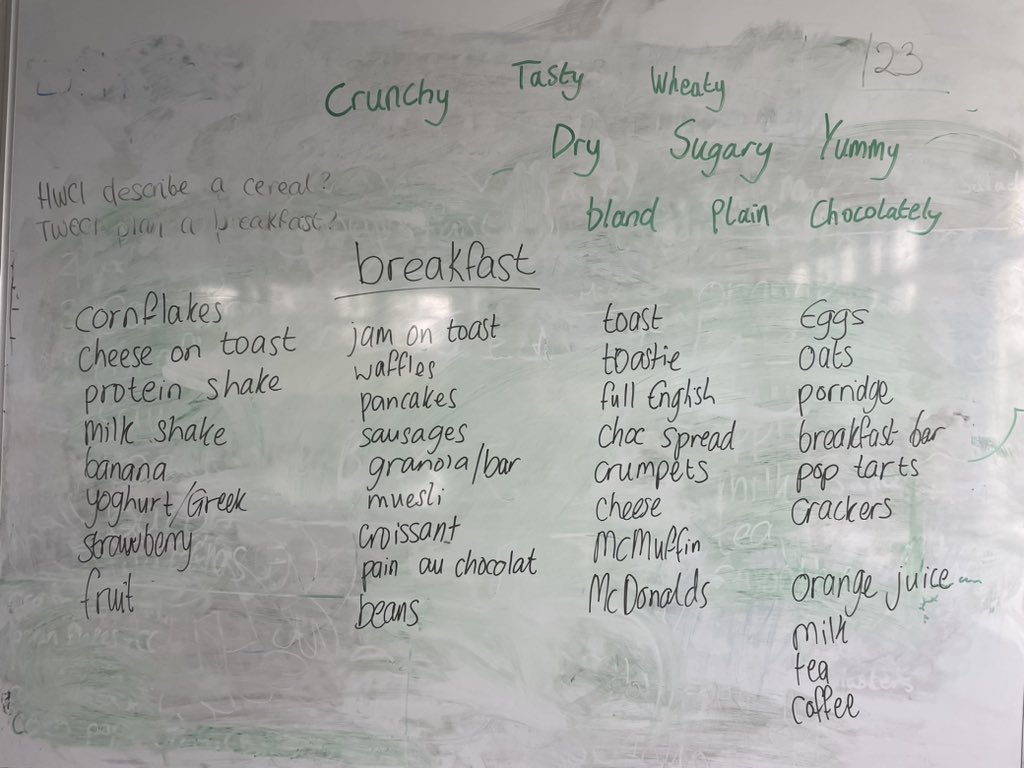 /23
Crunchy Tasty Wheaty
Dry Sugary Yummy
HWCI describe a cereal?
TWECI plan a breakfast?
bland Plain Chocolately
breakfast
cornflakes
cheese on toast
protein shake
milk shake
banana
yoghurt/Greek
strawberry
fruit
jam on toast
waffles
pancakes
sausages
granola/bar
muesli
croissant
pain au chocolat
beans
toast
toastie
full English
choc spread
crumpets
cheese
McMuffin
McDonalds
Eggs
oats
porridge
breakfast bar
pop tarts
crackers
orange juice
milk
tea
coffee